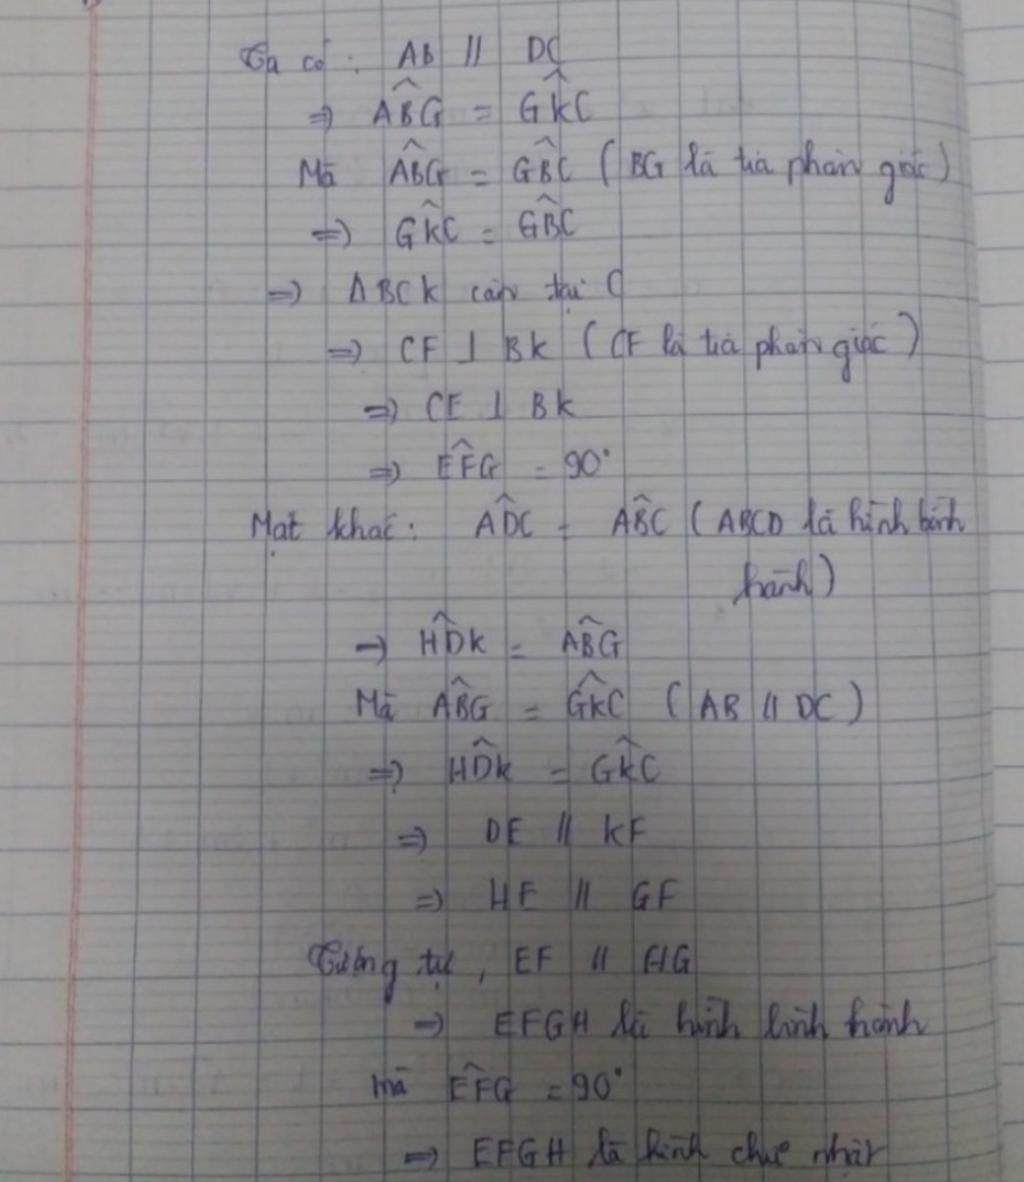 Ta có : AB // DC
=> ABĜ = GK̂C
Mà AB̂G = GB̂C ( BG là tia phân giác )
=> GK̂C = GB̂C
=> ΔBCK cân tại C
=> CF ⊥ BK ( CF là tia phân giác )
=> CE ⊥ BK
=> EF̂G = 90°
Mặt khác : AD̂C = AB̂C ( ABCD là hình bình
hành )
=> HD̂K = AB̂G
Mà AB̂G = GK̂C ( AB // DC )
=> HD̂K = GK̂C
=> DE // KF
=> HE // GF
Tương tự , EF // HG
=> EFGH là hình bình hành
mà EF̂G = 90°
=> EFGH là hình chữ nhật